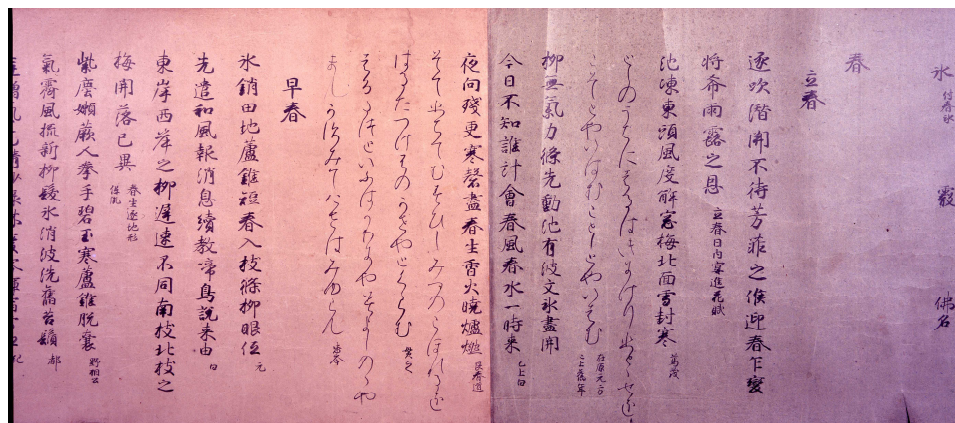 氷 付春氷 霰 佛名
春
立春
逐吹潜開不待芳菲之候迎春乍變
將希雨露之恩 立春日内宴進花賦
池凍東頭風度解窓梅北面雪封寒 篤茂
としのうちにはるはきにけりひとゝせを
こそとやいはむことしとやいはむ 在原元方
柳無氣力條先動池有波文氷盡開
今日不知誰計會春風春水一時來 已上白
夜向殘更寒磬盡春生香火曉爐燃 良春道
そてひちてむすひしみつのこほれるを
はるたつけふのかせやとくらむ 貫之
はるたつといふはかりにやみよしのゝや
まもかすみてけさはみゆらん 忠岑
早春
氷銷田地蘆錐短春入枝條柳眼低 元
先遣和風報消息續教啼鳥説来由 白
東岸西岸之柳遲速不同南枝北枝之
梅開落已異 春生逐地形 保胤
紫塵嬾蕨人拳手碧玉寒蘆錐脱嚢 野相公
氣霽風梳新柳髮氷消波洗舊苔鬚 都